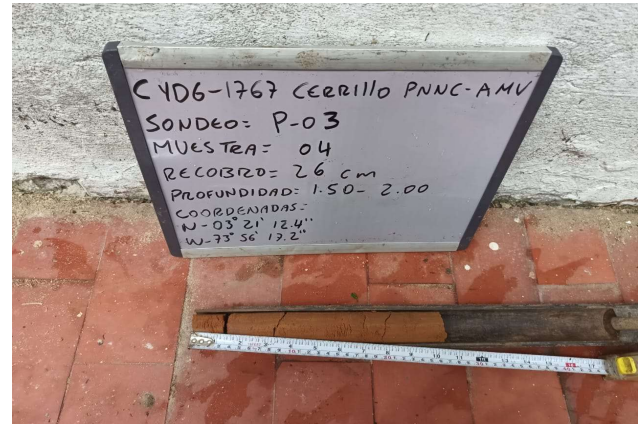 CYDG-1767 CERRILLO PNNC-AMV
SONDEO= P-03
MUESTRA= 04
RECOBRO= 26 cm
PROFUNDIDAD= 1.50- 2.00
COORDENADAS=
N-03° 21' 12.4"
W-73° 56' 17.2"